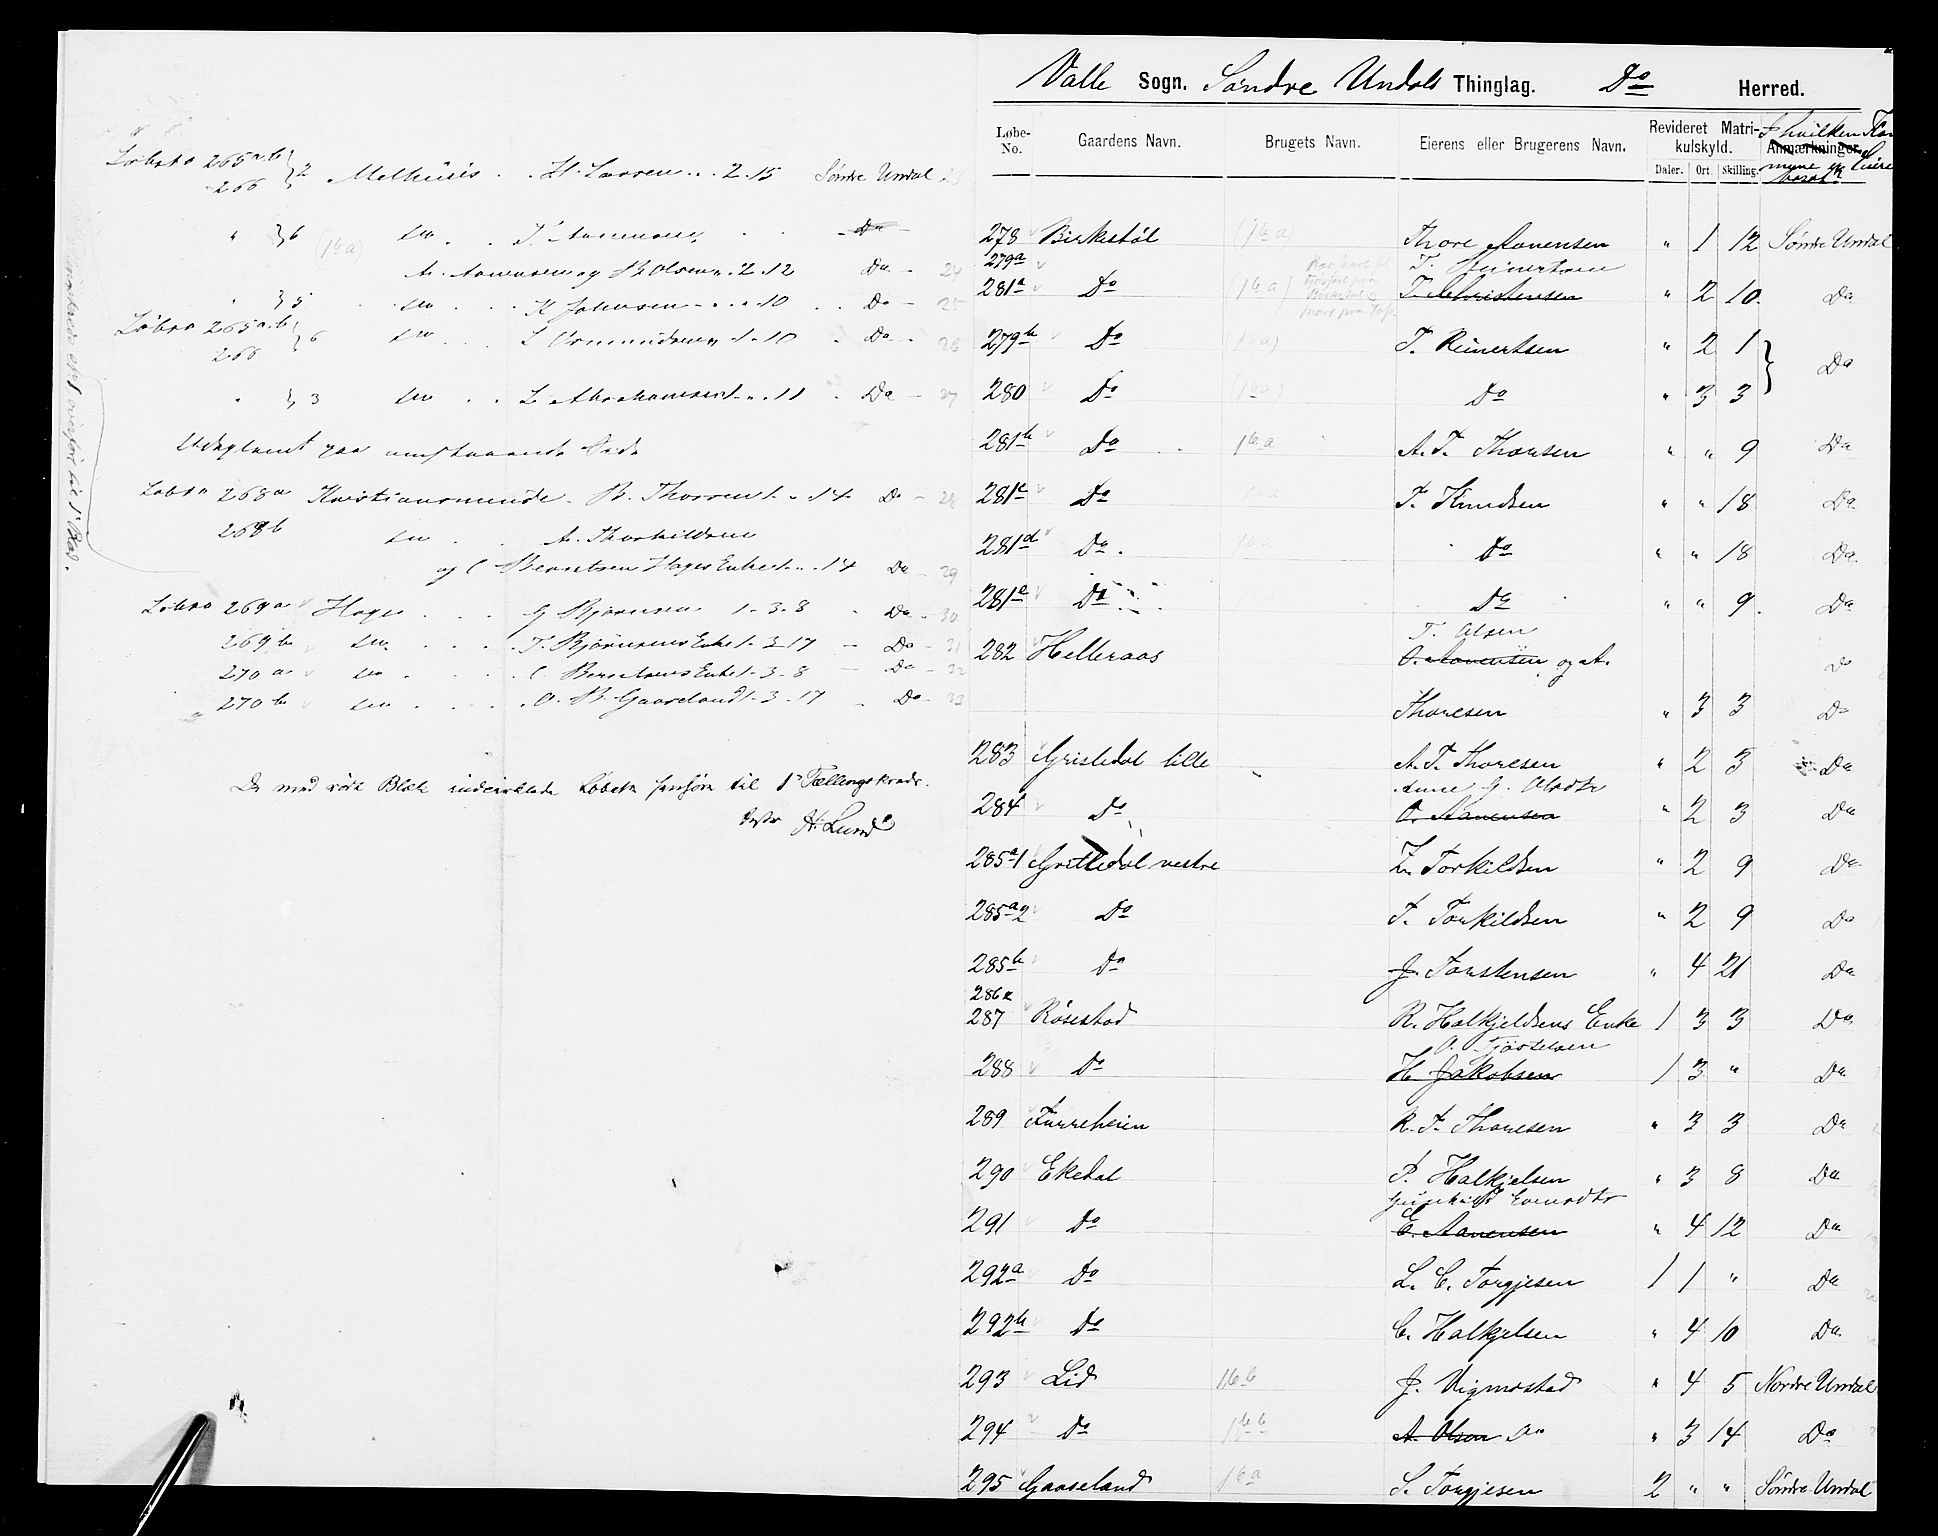 Løbno 265a.b 2 Malhuus . . H. Larsen . . 2. 15 Søndre Undal 23
266
" 6 (16a) do . . T. Aanensen . . Do
A. Aanensen og B. Olsen " 2. 12 Do - 24
" 5 do . . K Johnsen - " . 10 . . Do - 25
Løbno 265a.b 6 do . . L Osmundsen " 1. 10 . Do - 26
266
" 3 do . . L. Abrahamsen 1. " . 11 . Do - 27
paa omstaaende Side
Løbno 268a Kristiansminde . B. Thorsen 1. " . 14 Do - 28
268b do . . A. Thorkildsen
og C Berntsen Hages Enke 1. " . 14 Do - 29
Løbno 269a Hage . . . G Bjørnsen 1. 3. 8 . Do - 30
269b do . . . T. Bjørnsens Enke 1. 3. 17 - Do - 31
270a do . . . C Berntsens Enke 1. 3. 8 - Do - 32
270b do . . . O. B. Gaaseland 1. 3. 17 - Do - 33
De med rødt Blæk indcirklede Løbno henhøre til 1ste Tællingskreds.
H. Lund
til 1ste Kred.
Valle Sogn. Søndre Undals Thinglag. Do Herred.
Løbe-No. Gaardens Navn. Brugets Navn. Eierens eller Brugerens Navn. Revideret Matrikulskyld. Daler. Ort. Skilling. Anmærkninger. I hvilken Kommune er Eieren bosat
278 Birkestøl (16a) Thore Aanensen " 1 12 Søndre Undal
279a T. Reinertsen
281a Do (16a) T. Christensen " 2 10 Do
279b Do (16a) T. Reinertsen " 2 1 Do
280 Do (16a) Do " 3 3
281b Do 16a A. T. Thorsen " " 9 Do
281c Do 16a T. Knudsen " " 18 Do
281d Do 16a Do " " 18 Do
281e Do 16a Do " " 9 Do
T. Olsen
282 Helleraas O. Aanensen og A. Do
Thoresen " 3 3 Do
283 Gristedal lille A. T. Thoresen " 2 3 Do
Anne G. Olsdtr
284 Do O. Aanensen " 2 3 Do
285a1 Gristedal vestre Z. Torkildsen " 2 9 Do
285a2 Do T. Torkildsen " 2 9 Do
285b Do J. Torstensen " 4 21 Do
286a
287 Røsestad R. Halkjeldsens Enke 1 3 3 Do
288 Do H. Jakobsen 1 3 " Do
289 Furreheien R. T. Thoresen " 3 3 Do
290 Ekedal P. Halkjelsen " 3 8 Do
291 Do E. Aanensen " 4 12 Do
292a Do L. C. Torgjesen 1 1 " Do
292b Do C. Halkjelsen " 4 10 Do
293 Lid 16b J. Vigmostad " 4 5 Nordre Undal
294 Do 16b A. Olsen Do " 3 14 Do
295 Gaaseland 16a S. Torgjesen 2 " " Søndre Undal